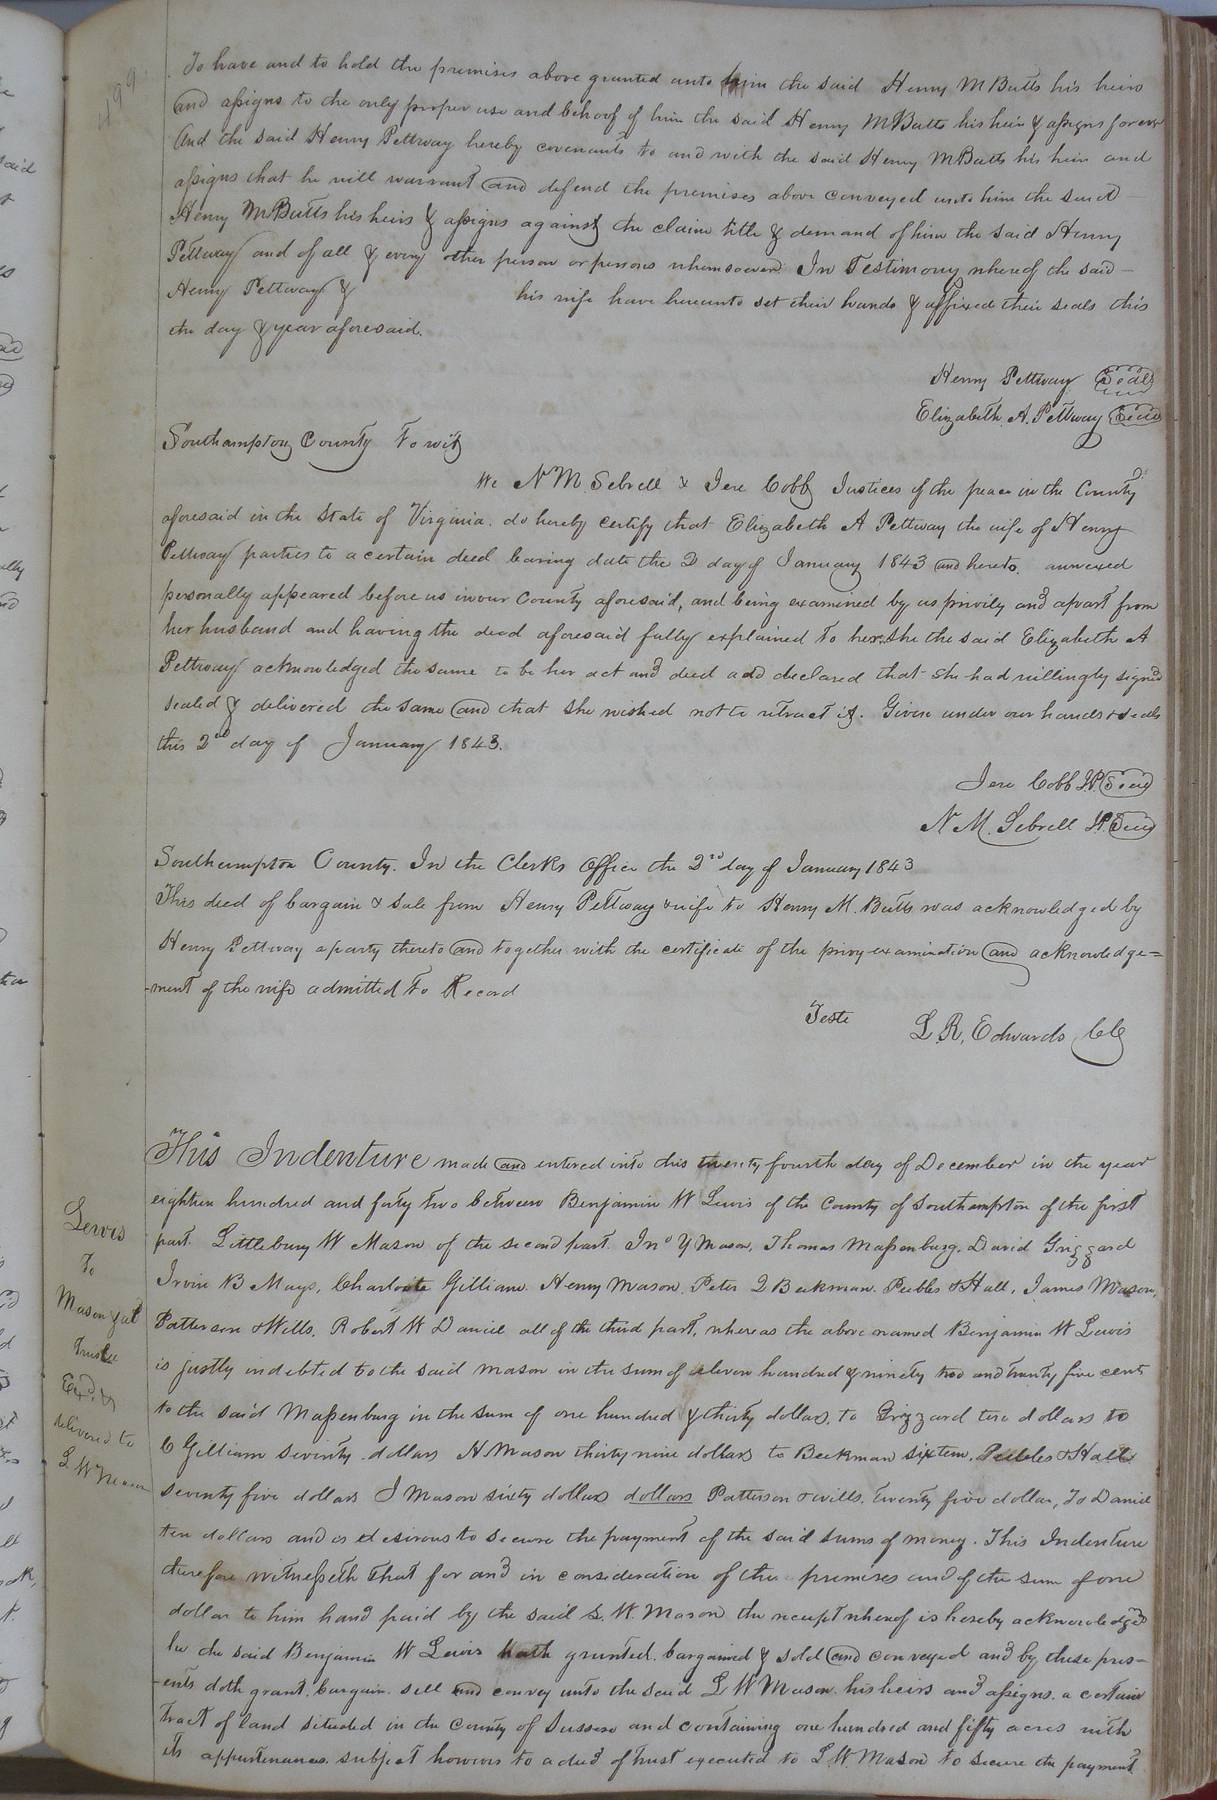 499
To have and to hold the premises above granted unto him the said Henry M Butts his heirs
and assigns to the only proper use and behoof of him the said Henry M Butts his heirs & assigns forever
And the said Henry Pettway hereby covenants to and with the said Henry M Butts his heirs and
assigns that he will warrant and defend the premises above conveyed unto him the said
Henry M Butts his heirs & assigns against the claim title & demand of him the said Henry
Pettway and of all & every other person or persons whomsoever In Testimony whereof the said
Henry Pettway & his wife have hereunto set their hands & affixed their seals this
the day & year aforesaid.
Henry Pettway Seal
Elizabeth A. Pettway Seal
Southampton County To wit
We N M. Sebrell & Jere Cobb Justices of the peace in the County
aforesaid in the State of Virginia. do hereby certify that Elizabeth A Pettway the wife of Henry
Pettway parties to a certain deed bearing date the 2 day of January 1843 and hereto annexed
personally appeared before us in our County aforesaid, and being examined by us privily and apart from
her husband and having the deed aforesaid fully explained to her. she the said Elizabeth A
Pettway acknowledged the same to be her act and deed add declared that she had willingly signed
sealed & delivered the same and that she wished not to retract it. Given under our hands & seals
this 2nd day of January 1843.
Jere Cobb J.P. Seal
N M. Sebrell J.P. Seal
Southampton County. In the Clerks Office the 2nd day of January 1843
This deed of bargain & sale from Henry Pettway & wife to Henry M. Butts was acknowledged by
Henry Pettway a party thereto and together with the certificate of the privy examination and acknowledge=
-ment of the wife admitted to Record
Teste L. R. Edwards CC
Lewis
To
Mason & al
Trustee
Exd. &
delivered to
L W Mason
This Indenture made and entered into this twenty fourth day of December in the year
eighteen hundred and forty two between Benjamin W Lewis of the County of Southampton of the first
part. Littlebury W Mason of the second part. Jno Y Mason, Thomas Massenburg. David Grizzard
Irvin B Mays, Charlotte Gilliam. Henry Mason. Peter Z Beekman. Peebles & Hall, James Mason,
Patterson & Wills. Robert W Daniel all of the third part, whereas the above named Benjamin W Lewis
is justly indebted to the said Mason in the sum of eleven hundred & ninety two and twenty five cent
to the said Massenburg in the sum of one hundred & thirty dollars, to Grizzard two dollars to
C Gilliam seventy dollars H. Mason thirty nine dollars to Beekman sixteen, Peebles & Hall
seventy five dollars J Mason sixty dollars dollars Patterson & wills. Twenty five dollar, To Daniel
ten dollars and is desirous to secure the payment of the said sums of money. This Indenture
therefore witnesseth that for and in consideration of the premises and of the sum of one
dollar to him hand paid by the said L. W. Mason the receipt whereof is hereby acknowledged
he the said Benjamin W Lewis hath granted. bargained & sold and conveyed and by these pres-
-ents doth grant. bargain. sell and convey unto the said L W Mason. his heirs and assigns. a certain
tract of land situated in the County of Sussex and containing one hundred and fifty acres with
its appurtenances. subject however to a deed of trust executed to L. W. Mason to secure the payment